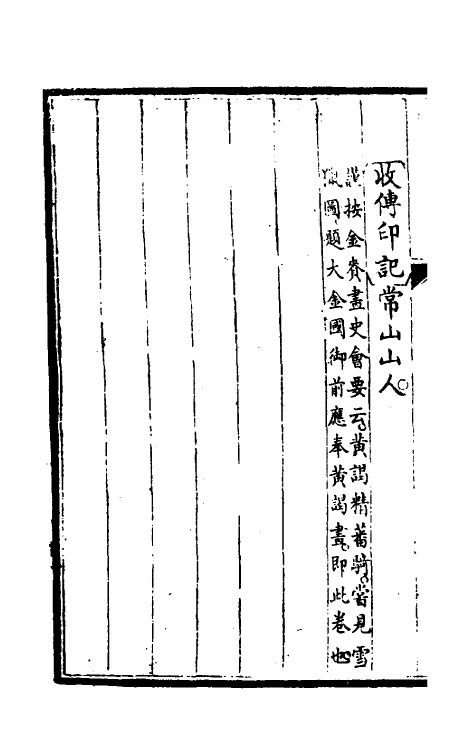 收傳印記常山山人
謹按金賚畫史會要云黄謁精蕃騎嘗見雪
獵圖題大金國御前應奉黄謁畫即此卷也